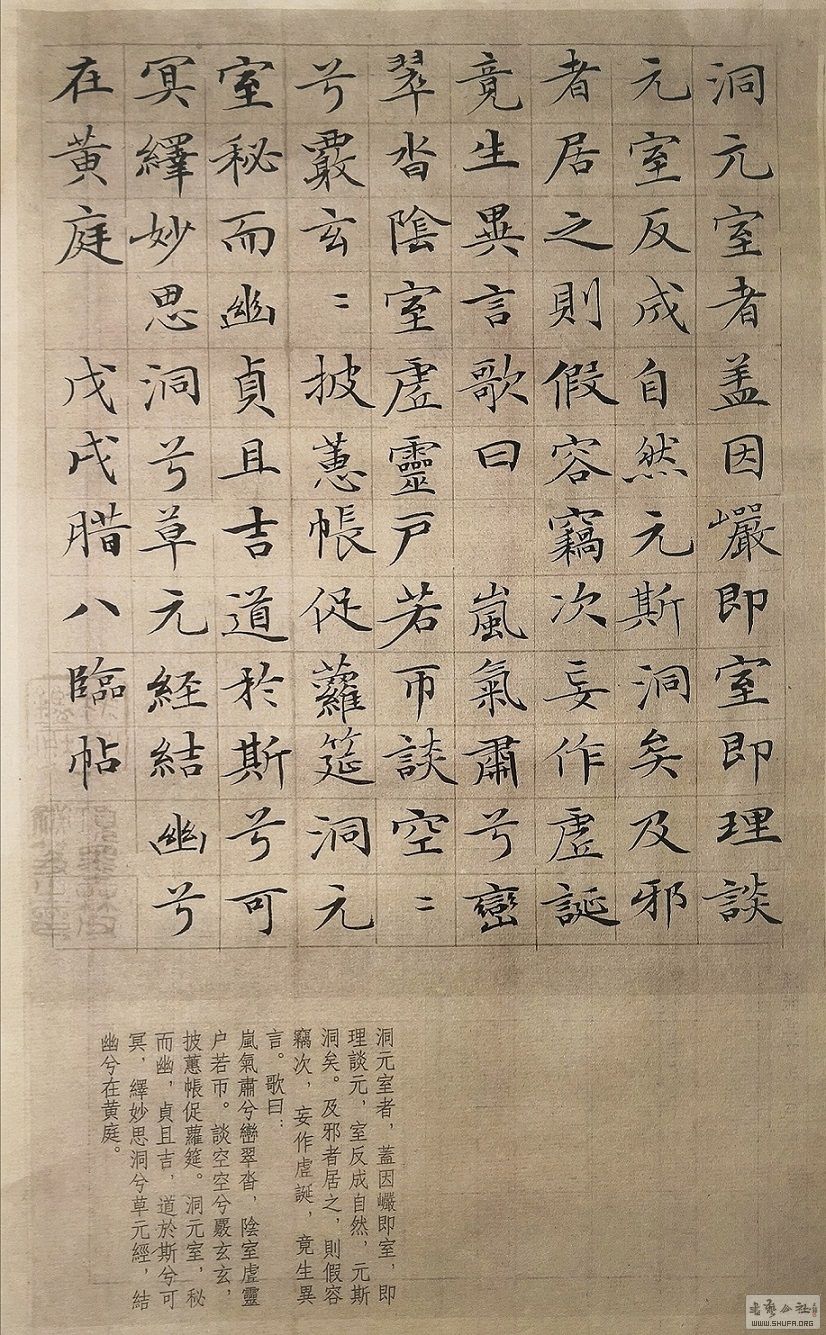 洞元室者盖因巗即室即理談
元室反成自然元斯洞矣及邪
者居之則假容竊次妄作虛誕
竟生異言歌曰 嵐氣肅兮巒
翠沓陰室虛靈戶若帀談空〻
兮覈玄〻披蕙帳促蘿筵洞元
室秘而幽貞且吉道於斯兮可
冥繹妙思洞兮草元経結幽兮
在黃庭 戊戌腊八臨帖
洞元室者，蓋因巗即室，即
理談元，室反成自然，元斯
洞矣。及邪者居之，則假容
竊次，妄作虛誕，竟生異
言。歌曰：
嵐氣肅兮巒翠沓，陰室虛靈
户若帀。談空空兮覈玄玄，
披蕙帳促蘿筵。洞元室，秘
而幽，貞且吉，道於斯兮可
冥，繹妙思洞兮草元經，結
幽兮在黃庭。
WWW.SHUFA.ORG